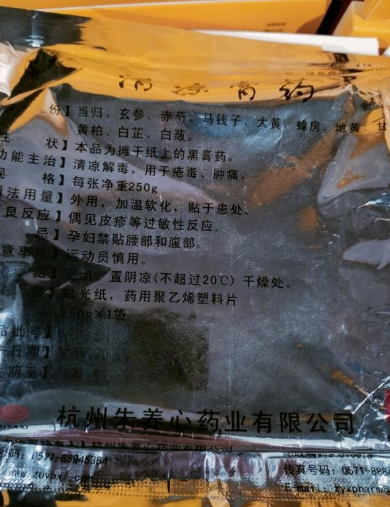 清凉膏药
份】当归、玄参、赤芍、马钱子、大黄、蜂房、地黄、甘
黄柏、白芷、白蔹。
状】本品为摊于纸上的黑膏药。
功能主治】清凉解毒。用于疮毒、肿痛。
格】每张净重250g
法用量】外用、加温软化，贴于患处。
良反应】偶见皮疹等过敏性反应。
忌】孕妇禁贴腰部和腹部。
意事项】运动员慎用。
置阴凉(不超过20℃)干燥处。
光纸，药用聚乙烯塑料片
250g×1袋
品批号
日期
期至】
杭州朱养心药业有限公司
杭州朱养心药业有限公司
0571-88945384
传真号码：0571-888
E-mail：zyxpharm@